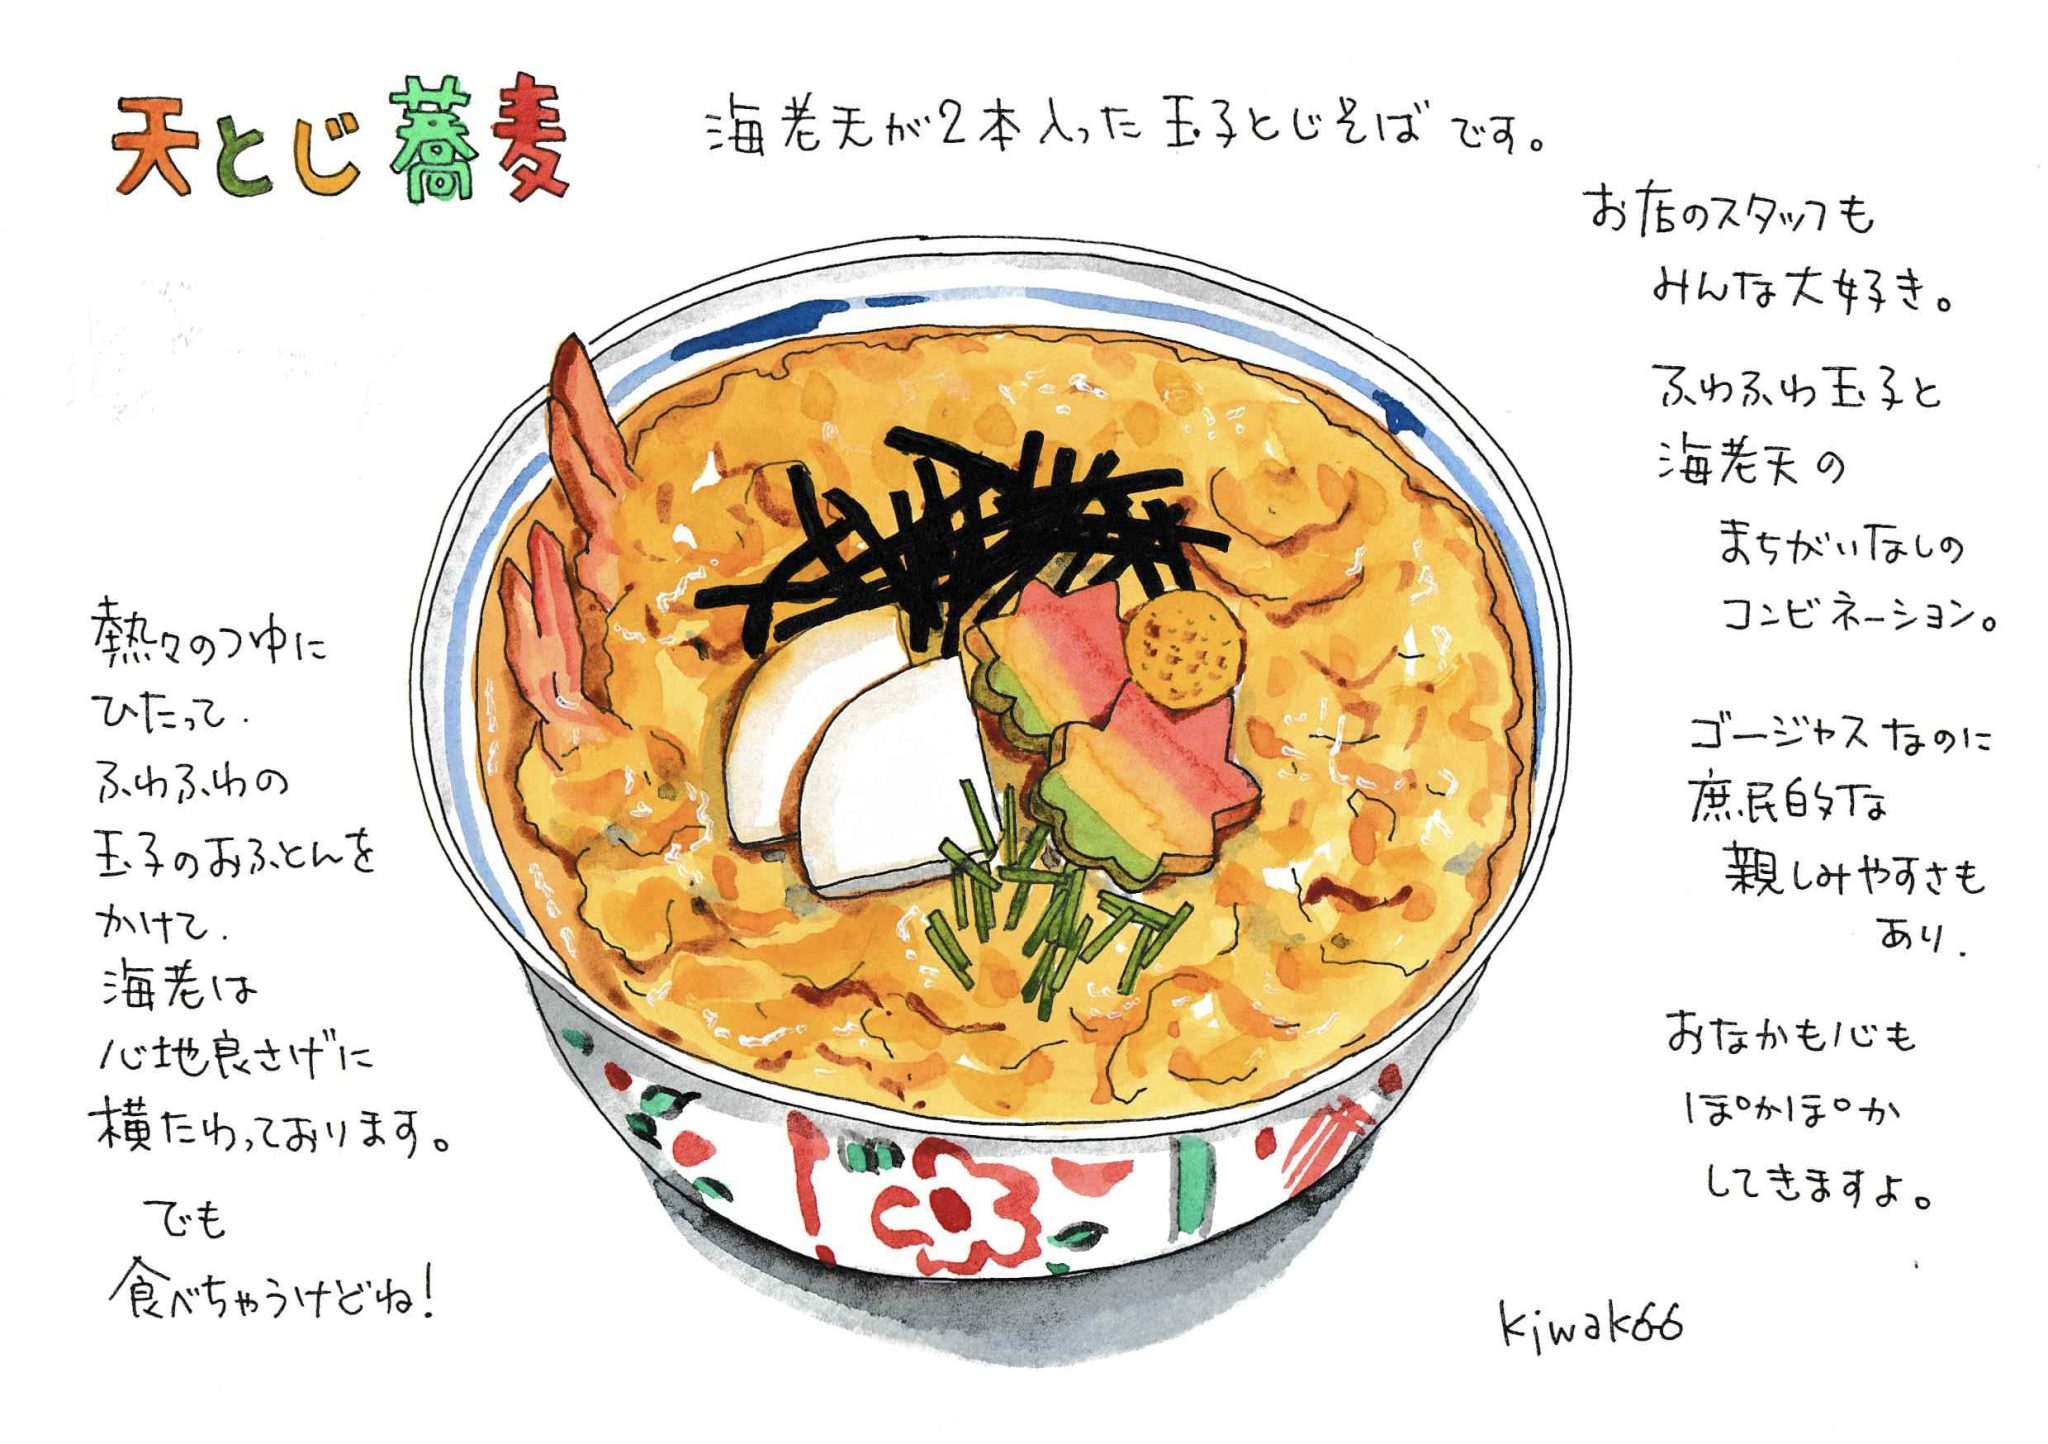 天とじ蕎麦
海老天が2本入った玉子とじそばです。
お店のスタッフも
みんな大好き。
ふわふわ玉子と
海老天の
まちがいなしの
コンビネーション。
ゴージャスなのに
庶民的な
親しみやすさも
あり.
おなかも心も
ぽかぽか
してきますよ。
熱々のつゆに
ひたって.
ふわふわの
玉子のおふとんを
かけて.
海老は
心地良さげに
横たわっております。
でも
食べちゃうけどね!
kiwak66